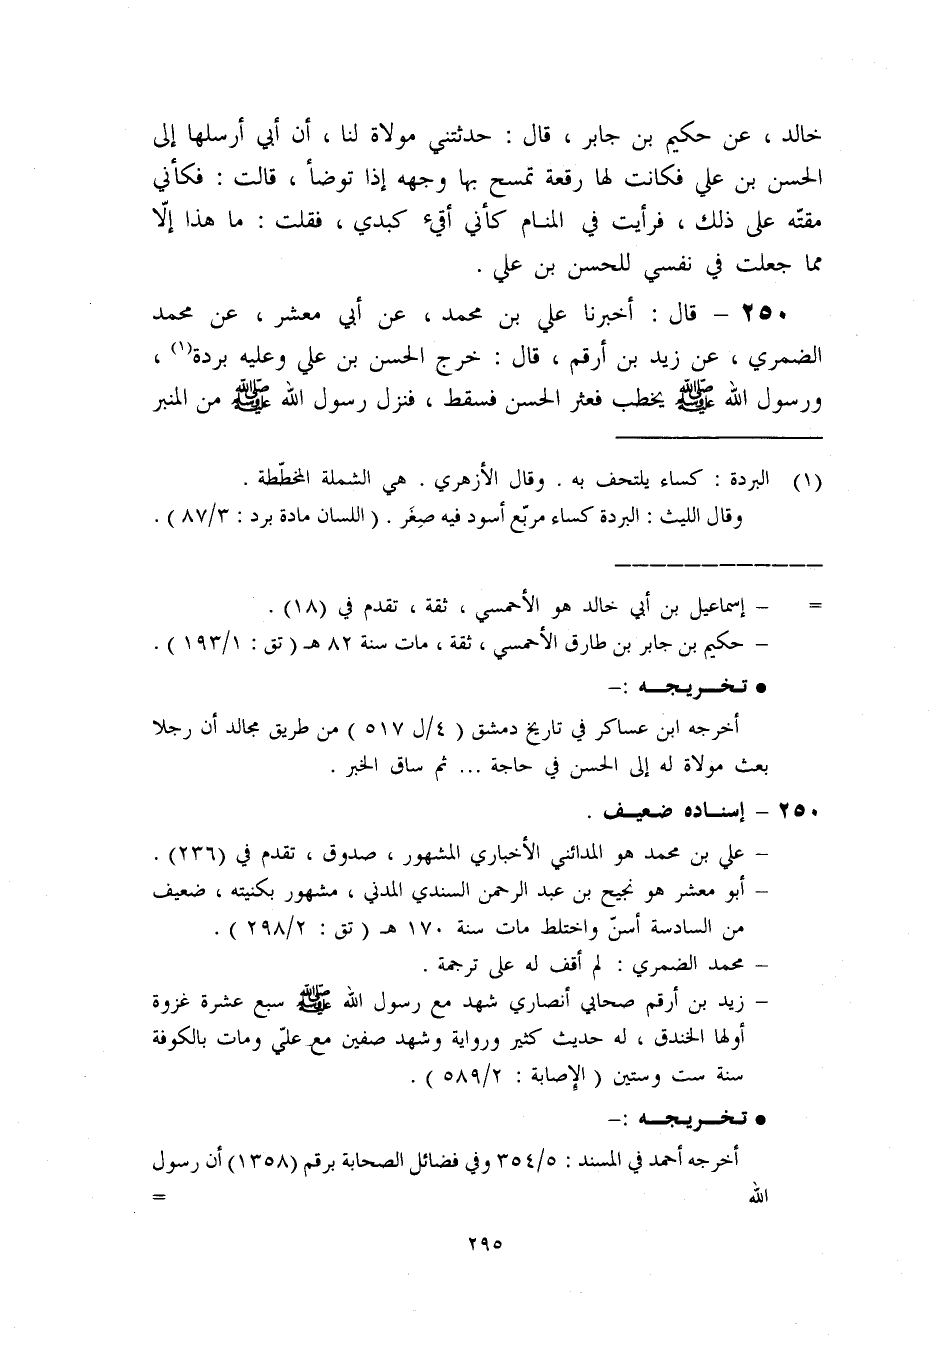 خالد ، عن حكيم بن جابر ، قال : حدثتني مولاة لنا ، أن أبي أرسلها إلى
الحسن بن علي فكانت لها رقعة تمسح بها وجهه إذا توضأ ، قالت : فكأني
مقتّه على ذلك ، فرأيت في المنام كأني أقيء كبدي ، فقلت : ما هذا إلّا
مما جعلت في نفسي للحسن بن علي .
٢٥٠ – قال : أخبرنا علي بن محمد ، عن أبي معشر ، عن محمد
الضمري ، عن زيد بن أرقم ، قال : خرج الحسن بن علي وعليه بردة(١) ،
ورسول الله ﷺ يخطب فعثر الحسن فسقط ، فنزل رسول الله ﷺ من المنبر
(١) البردة : كساء يلتحف به . وقال الأزهري . هي الشملة المخطّطة .
وقال الليث : البردة كساء مربّع أسود فيه صِغَر . ( اللسان مادة برد : ٨٧/٣ ) .
= – إسماعيل بن أبي خالد هو الأحمسي ، ثقة ، تقدم في (١٨) .
– حكيم بن جابر بن طارق الأحمسي ، ثقة ، مات سنة ٨٢ هـ ( تق : ١٩٣/١ ) .
• تـخـــريـجـــه :–
أخرجه ابن عساكر في تاريخ دمشق ( ٤/ل ٥١٧ ) من طريق مجالد أن رجلا
بعث مولاة له إلى الحسن في حاجة ... ثم ساق الخبر .
٢٥٠ – إسنــاده ضـعيــف .
– علي بن محمد هو المدائني الأخباري المشهور ، صدوق ، تقدم في (٢٣٦) .
– أبو معشر هو نجيح بن عبد الرحمن السندي المدني ، مشهور بكنيته ، ضعيف
من السادسة أسنّ واختلط مات سنة ١٧٠ هـ ( تق : ٢٩٨/٢ ) .
– محمد الضمري : لم أقف له على ترجمة .
– زيد بن أرقم صحابي أنصاري شهد مع رسول الله ﷺ سبع عشرة غزوة
أولها الخندق ، له حديث كثير ورواية وشهد صفين مع عليّ ومات بالكوفة
سنة ست وستين ( الإصابة : ٥٨٩/٢ ) .
• تـخـــريـجـــه :–
أخرجه أحمد في المسند : ٣٥٤/٥ وفي فضائل الصحابة برقم (١٣٥٨) أن رسول
الله =
٢٩٥